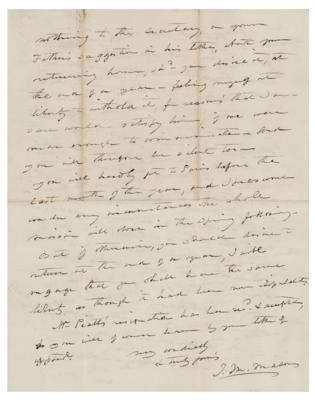 nothing to the Secretary, on your
Father's suggestion in his letter, about your
returning home, if you desired, at
the end of a year — feeling myself at
liberty to withhold it, for reasons that I am
sure would satisfy him, if we were
near enough to communicate — And
you will therefore be silent too —
you will hardly get to Paris before the
last month of the year, and I presume
under any circumstances the whole
mission will close in the Spring following.
But if otherwise, you should desire to
return at the end of a year, I will
engage that you shall have the same
liberty, as though it had been now stipulated.
Mr Piatt's resignation has been recd. & accepted,
as you will of course learn by your letter of
appoint.
very cordially
& truly yours
J. M. Mason